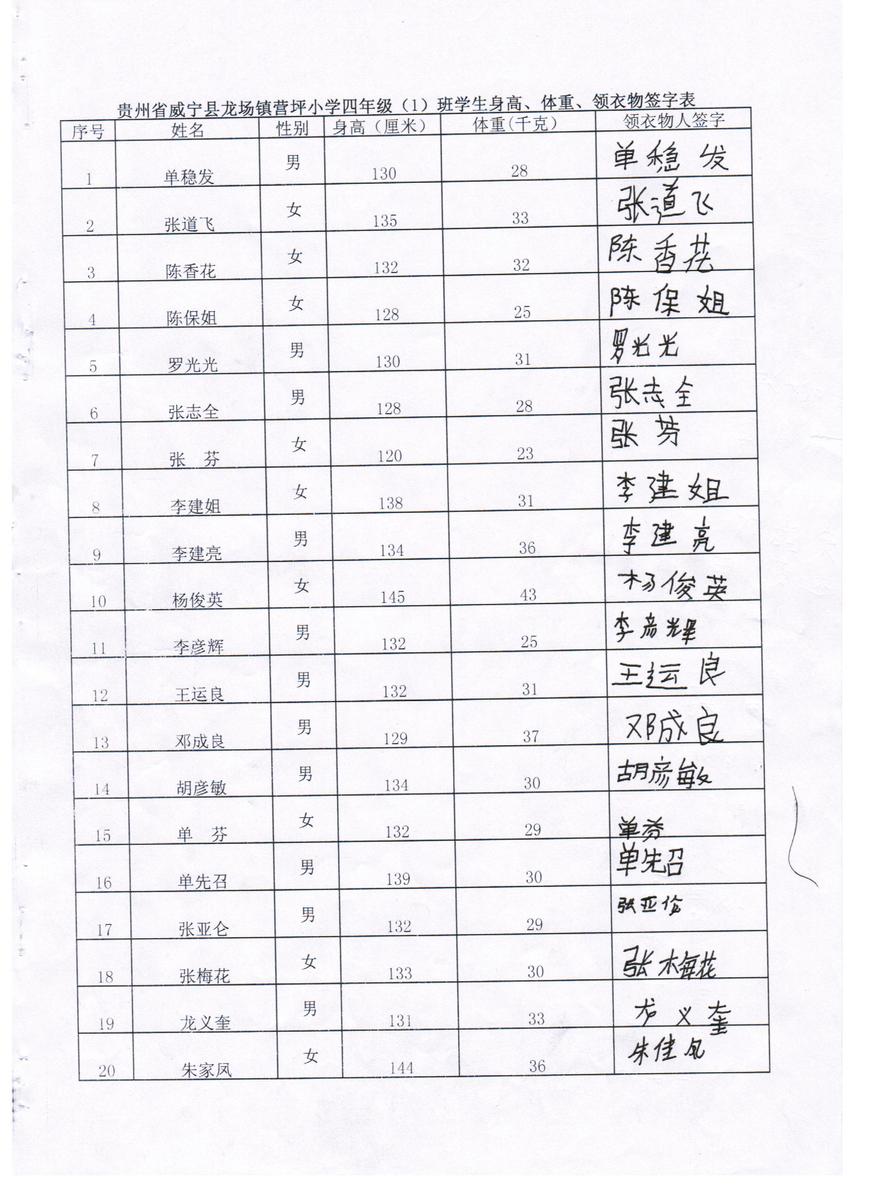 贵州省威宁县龙场镇营坪小学四年级（1）班学生身高、体重、领衣物签字表
序号 姓名 性别 身高（厘米） 体重(千克) 领衣物人签字
1 单稳发 男 130 28 单稳发
2 张道飞 女 135 33 张道飞
3 陈香花 女 132 32 陈香花
4 陈保姐 女 128 25 陈保姐
5 罗光光 男 130 31 罗光光
6 张志全 男 128 28 张志全
7 张 芬 女 120 23 张芬
8 李建姐 女 138 31 李建姐
9 李建亮 男 134 36 李建亮
10 杨俊英 女 145 43 杨俊英
11 李彦辉 男 132 25 李彦辉
12 王运良 男 132 31 王运良
13 邓成良 男 129 37 邓成良
14 胡彦敏 男 134 30 胡彦敏
15 单 芬 女 132 29 单芬
16 单先召 男 139 30 单先召
17 张亚仑 男 132 29 张亚伦
18 张梅花 女 133 30 张梅花
19 龙义奎 男 131 33 龙义奎
20 朱家凤 女 144 36 朱佳凤